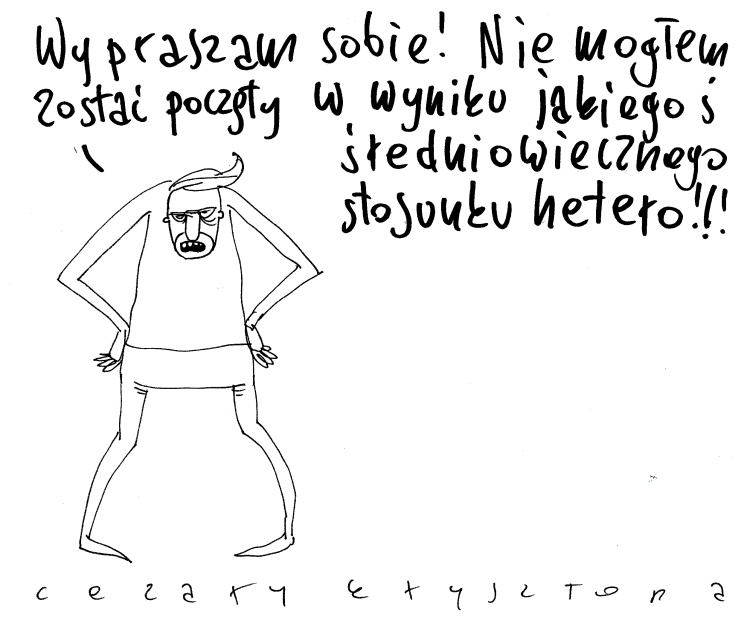 Wypraszam sobie! Nie mogłem
zostać poczęty w wyniku jakiegoś
średniowiecznego
stosunku hetero!!!
cezary krysztopa